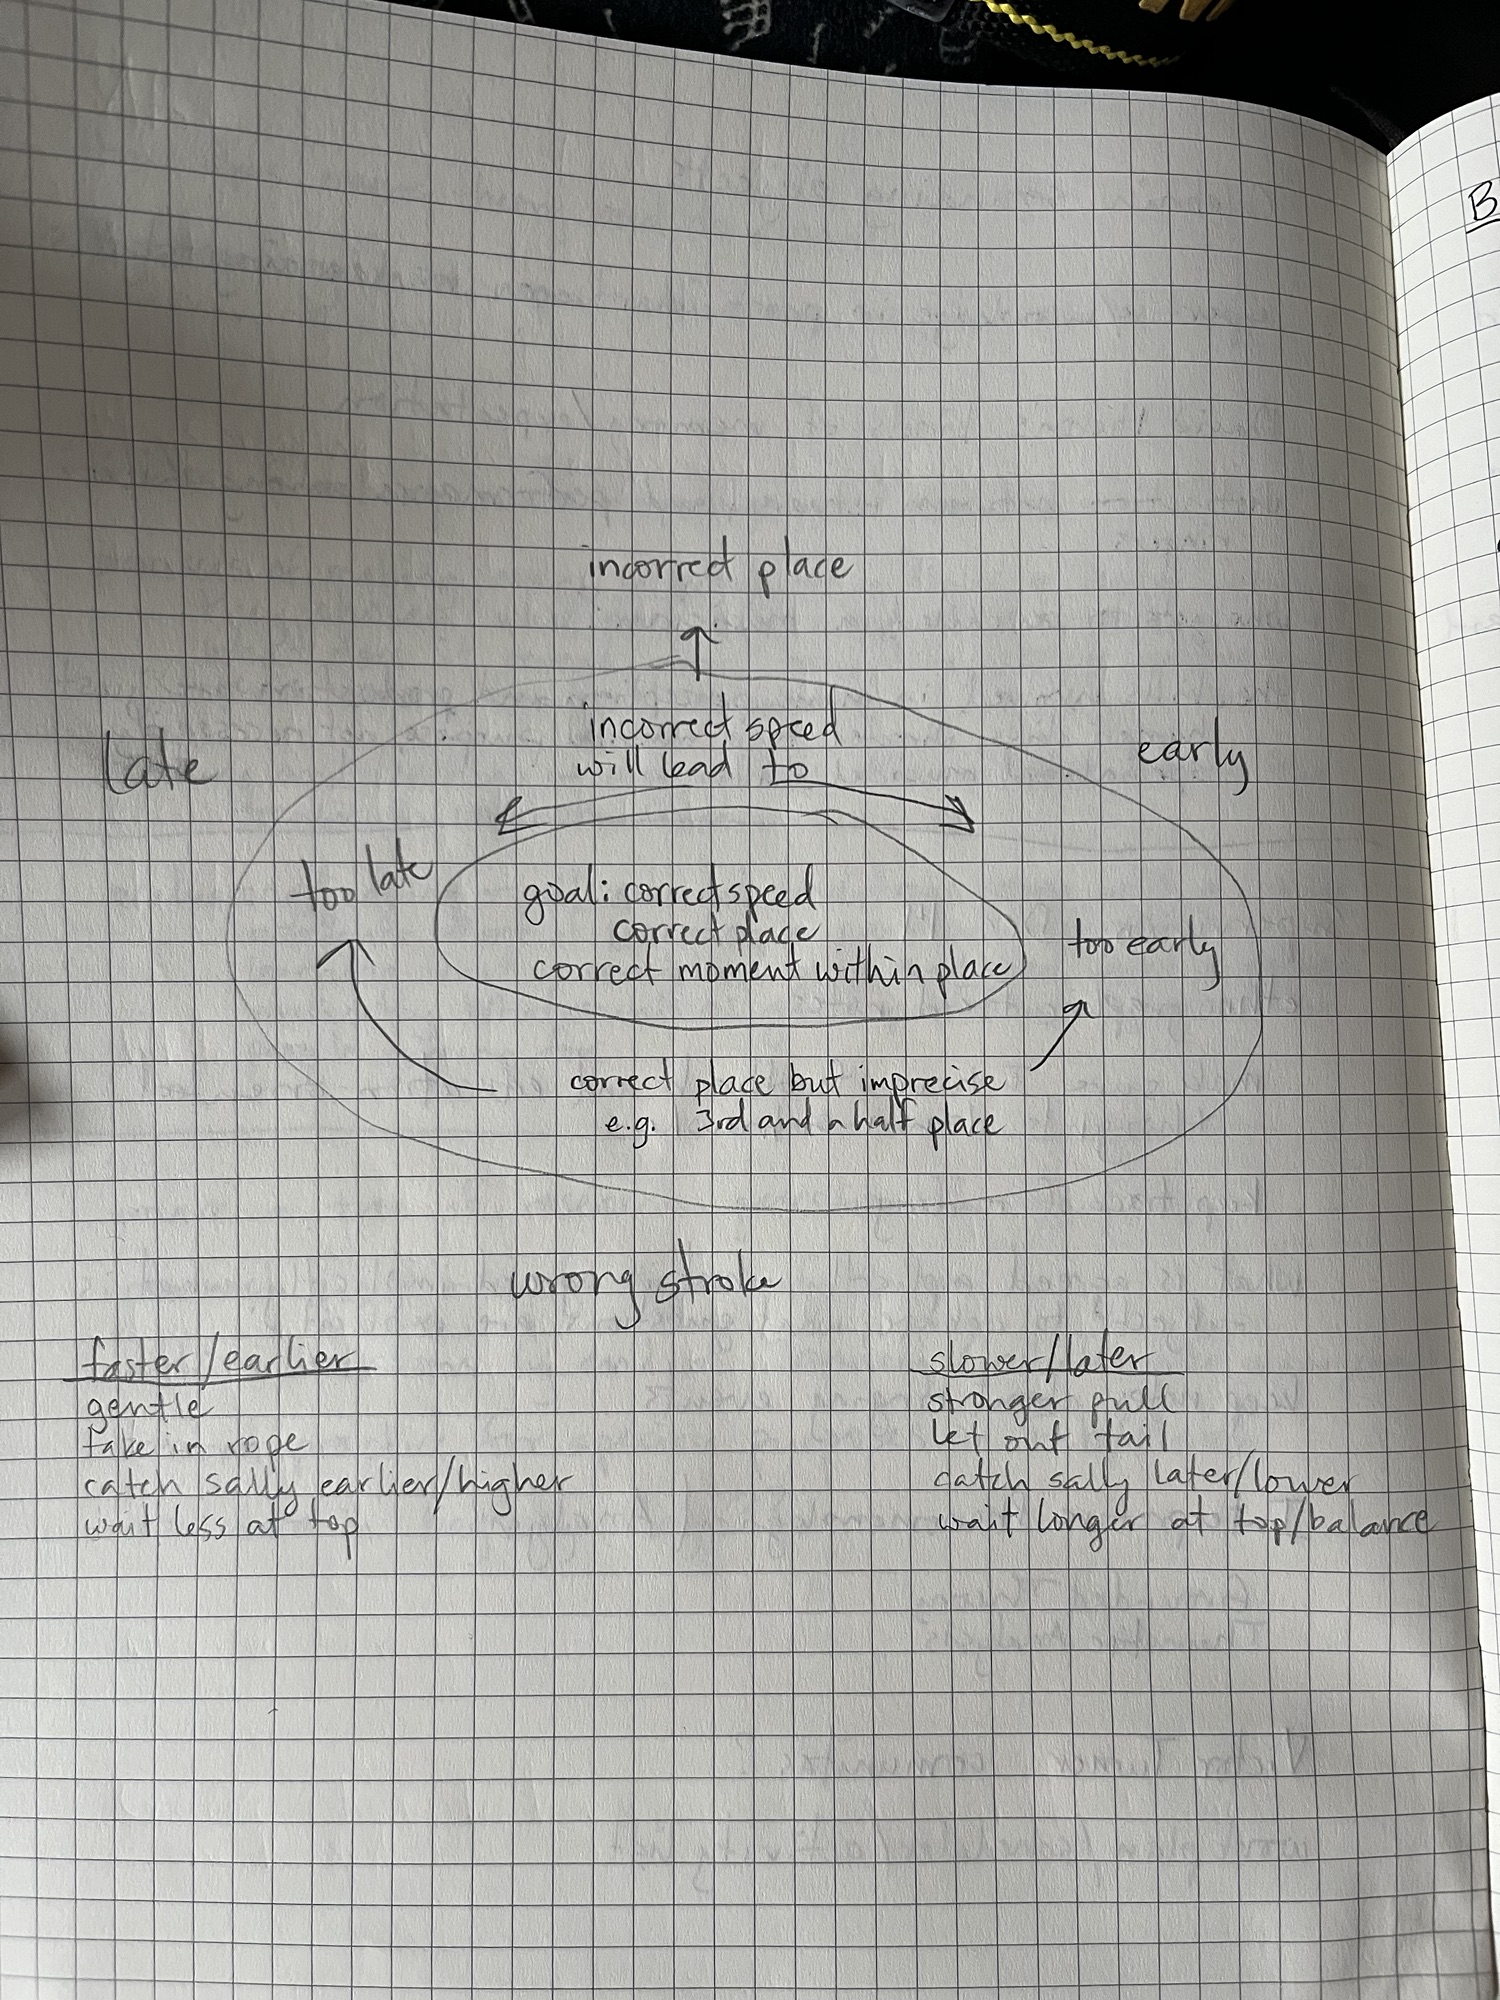 incorrect place
incorrect speed
will lead to
late
early
too late
goal: correct speed
correct place
correct moment within place
too early
correct place but imprecise
e.g. 3rd and a half place
wrong stroke
faster/earlier
gentle
take in rope
catch sally earlier/higher
wait less at top
slower/later
stronger pull
let out tail
catch sally later/lower
wait longer at top/balance
B